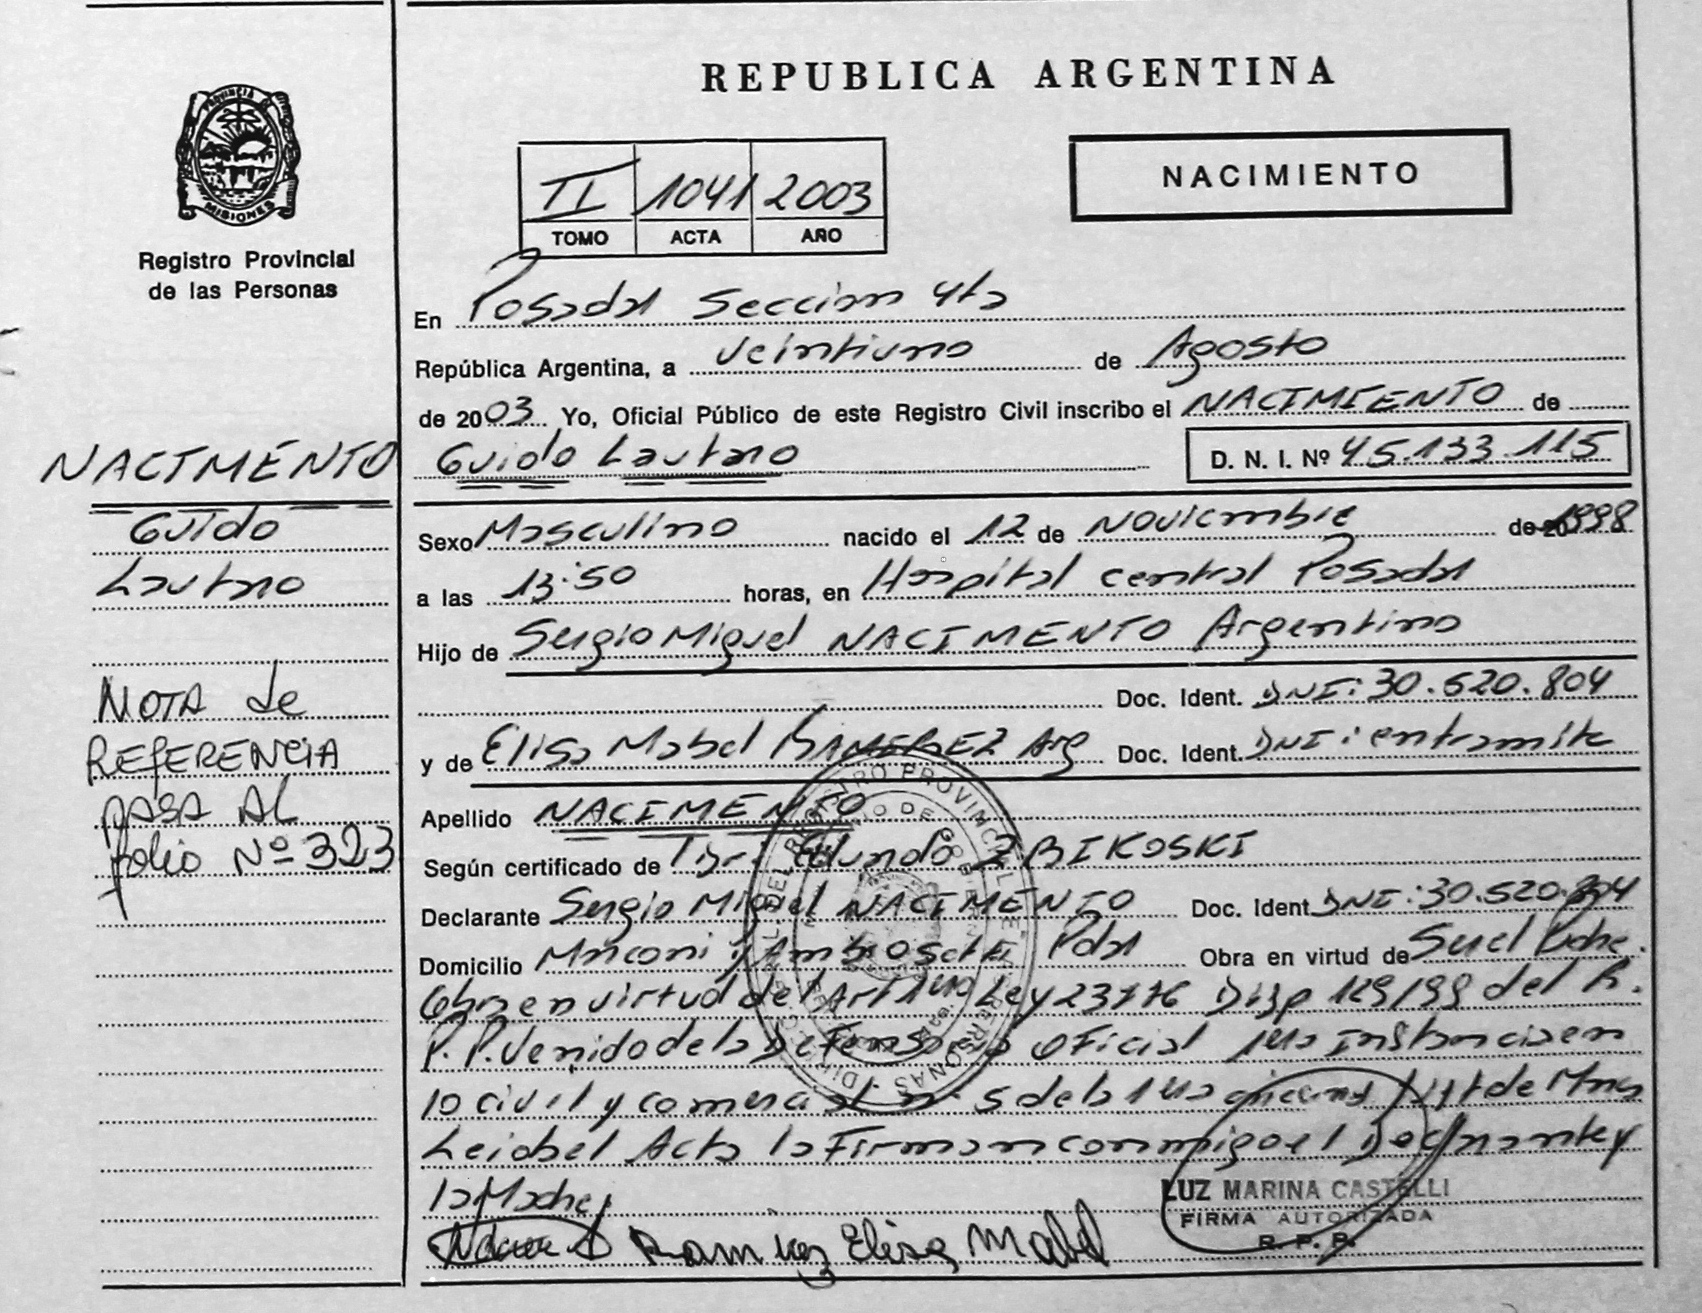 REPUBLICA ARGENTINA
PROVINCIA DE
MISIONES
Registro Provincial
de las Personas
NACIMIENTO
II 1041 2003
TOMO ACTA AÑO
En Posadas Seccion 4ta
República Argentina, a veintiuno de Agosto
de 2003 Yo, Oficial Público de este Registro Civil inscribo el NACIMIENTO de
Guido Lautaro D. N. I. Nº 45.133.115
Sexo Masculino nacido el 12 de Noviembre de 20 1998
a las 13:50 horas, en Hospital central Posadas
Hijo de Sergio Miguel NACIMENTO Argentino
Doc. Ident. DNI: 30.520.804
y de Elisa Mabel RAMIREZ Arg Doc. Ident. DNI: en tramite
Apellido NACIMENTO
Según certificado de Dr: Edundo ZBIKOSKI
Declarante Sergio Miguel NACIMENTO Doc. Ident DNI: 30.520.804
Domicilio Marconi y Pdas Obra en virtud de Su el Padre.
Obra en virtud del Art 1ro Ley 23776 Disp 129/99 del R.
P.P. Venido de la Defensoria Oficial 1ra Instancia en
lo civil y comercial nº 5 de la 1ra de Mnes
Leida el Acta la Firman conmigo el Declarante y
la Madre
Ramirez Elisa Mabel
LUZ MARINA CASTELLI
FIRMA AUTORIZADA
R. P. P.
NACIMENTO
Guido
Lautaro
NOTA de
REFERENCIA
PASA AL
folio Nº 323